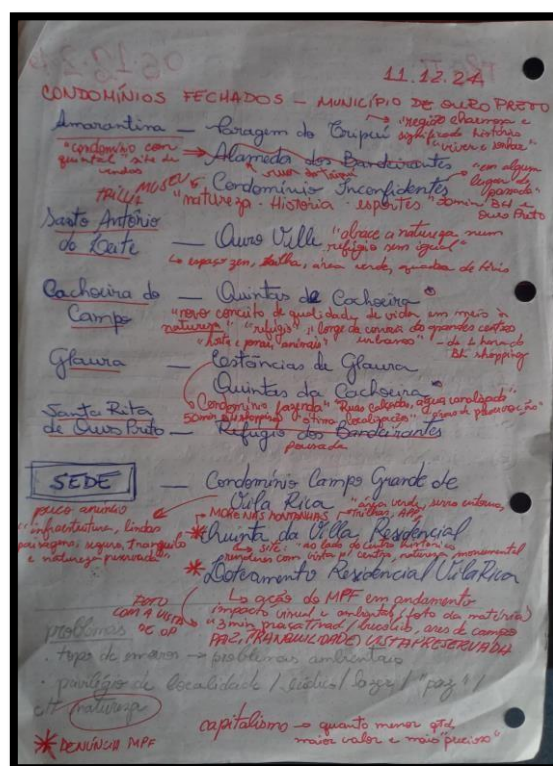 11.12.24
CONDOMÍNIOS FECHADOS - MUNICÍPIO DE OURO PRETO
Amarantina - Paragem do Tripuí
→ "região charmosa e
significado histórico
"viver e sonhar"
"condomínio com
quintal" site de
vendas
→ Alameda dos Bandeirantes
TRILHA MUSEU
Condomínio Inconfidentes
"em algum
lugar do
passado"
"natureza · História · esportes" "domini BH e
Ouro Preto
Santo Antônio
do Leite - Ouro Ville "abrace a natureza num
refúgio sem igual"
↳ espaço zen, trilha, área verde, quadra de tênis
Cachoeira do
Campo - Quintas da Cachoeira
"novo conceito de qualidade de vida em meio à
natureza" "refúgio", "longe da correria dos grandes centros
urbanos"
"horta e pomar, animais"
BH shopping
Glaura - Estâncias de Glaura
Quintas da Cachoeira
↳ Condomínio fazenda" "Ruas calçadas, água canalizada"
50min BH shopping "ótima localização"
Santa Rita
de Ouro Preto - Refúgio dos Bandeirantes
pousada
SEDE - Condomínio Campo Grande de
Vila Rica
"área verde, serro entorno,
trilhas, APP
pouco anúncio
"infraestrutura, lindas
paisagens, seguro, tranquilo
e natureza preservada"
→ MORE NAS MONTANHAS
* Quinta da Villa Residencial
↳ site: "ao lado do centro histórico
com vista p/ centro, natureza monumental
* Loteamento Residencial Vila Rica
↳ ação do MPF em andamento
impacto visual e ambiental (foto da matéria)
FOTO
COM A VISTA
DE OP
"3 min praça Tirad/ ares de campo
PAZ, TRANQUILIDADE, VISTA PRESERVADA
problemas
· topo de morros → problemas ambientais
· privilégio de localidade / lazer / "paz" /
natureza
capitalismo → quanto menor qtd,
maior valor e mais "precioso"
* DENÚNCIA MPF